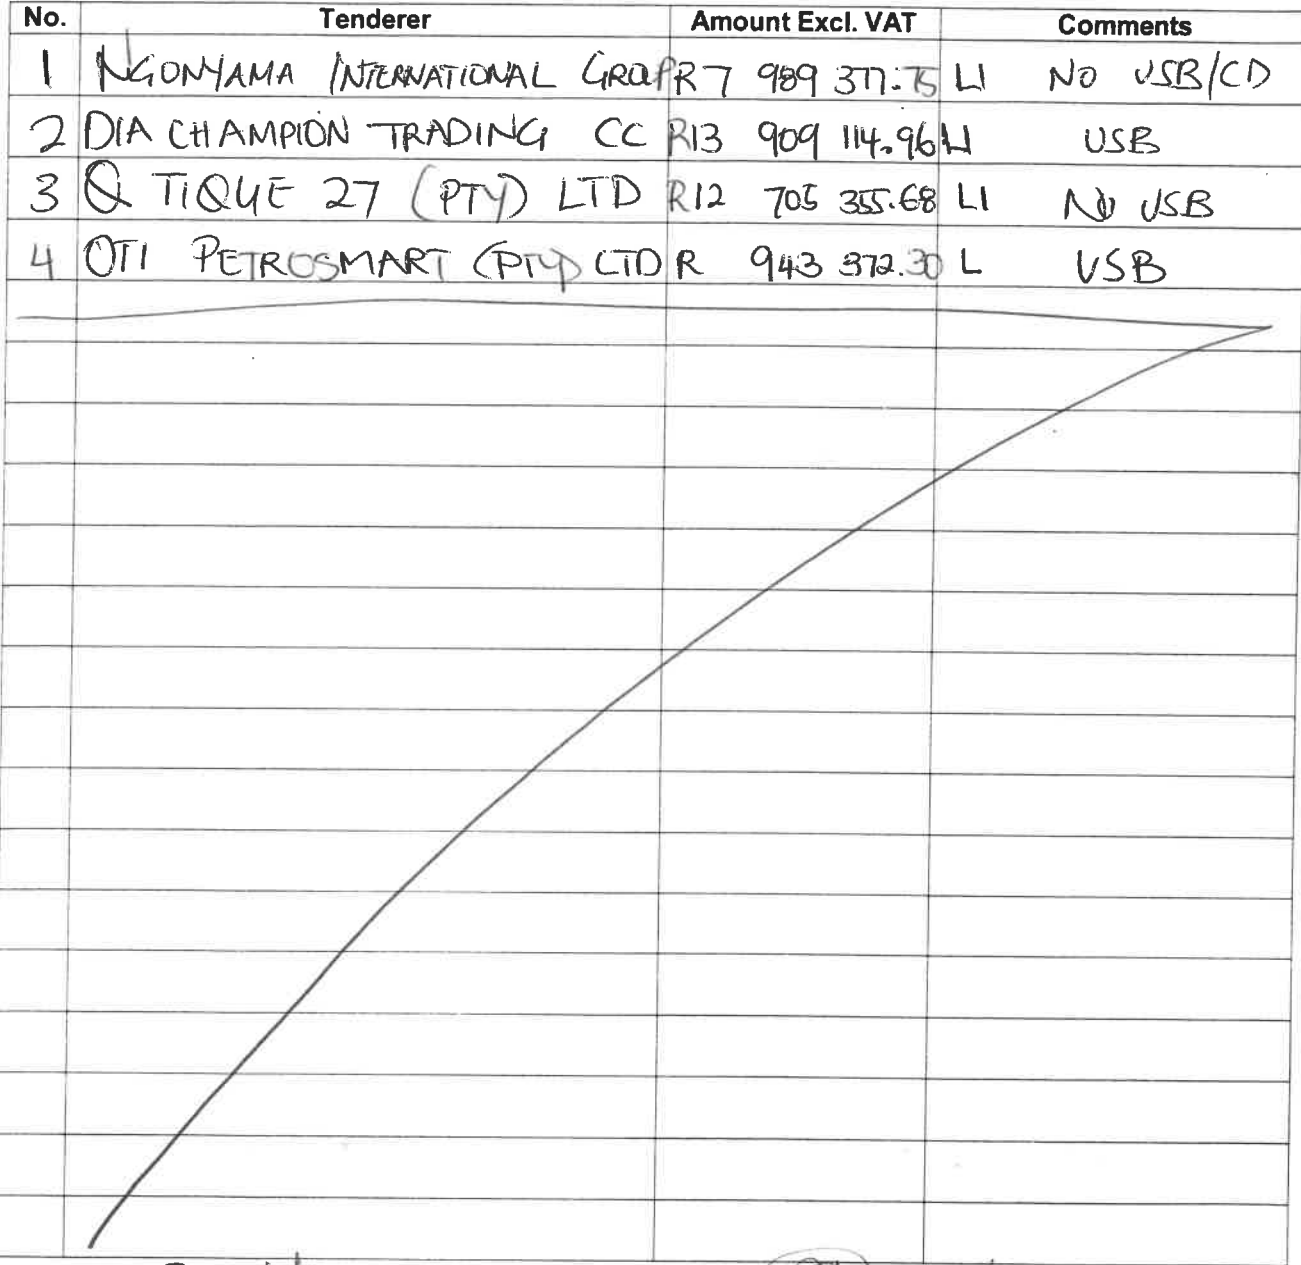 No. Tenderer Amount Excl. VAT Comments
1 NGONYAMA INTERNATIONAL GROUP R7 989 377.75 LI NO USB/CD
2 DIA CHAMPION TRADING CC R13 909 114.96 LI USB
3 Q TIQUE 27 (PTY) LTD R12 705 355.68 LI NO USB
4 OTI PETROSMART (PTY) LTD R 943 372.30 L USB